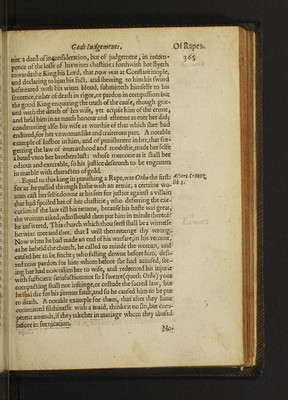 Gods Iudgements. Of Rapes.
365
not a deed of inconsideration, but of judgement, in recom-
pence of the losse of his wives chastitie: forthwith he flyeth
towards the King his Lord, that now was at Constantinople,
and declaring to him his fact, and shewing to him his sword
besmeared with his wives bloud, submitteth himselfe to his
sentence, either of death in rigor, or pardon in compassion: but
the good King enquiring the truth of the cause, though grie-
ved with the death of his wife, yet acquit him of the crime,
and held him in as much honour and esteeme as ever hee did;
condemning also his wife as worthie of that which shee had
endured, for her unwomanlike and traiterous part. A notable
example of Iustice in him, and of punishment in her, that for-
getting the law of womanhood and modestie, made her selfe
a bond unto her brothers lust: whose memorie as it shall bee
odious and execrable, so his justice deserveth to be engraven
in marble with characters of gold.
Equall to this king in punishing a Rape, was Otho the first:
for as he passed through Italie with an armie, a certaine wo-
man cast her selfe downe at his feet for justice against a villain
that had spoiled her of her chastitie; who deferring the exe-
cution of the law till his returne, because his haste was great,
the woman asked, who should then put him in minde thereof:
he answered, This church which thou seest shall be a witnesse
betwixt mee and thee, that I will then revenge thy wrong.
Now when he had made an end of his warfare, in his returne,
as he beheld the church, he called to minde the woman, and
caused her to be fetcht; who falling downe before him, desi-
red now pardon for him whom before she had accused, see-
ing hee had now taken her to wife, and redeemed his injurie
with sufficient satisfaction: not so I sweare (quoth Otho) your
compacting shall not infringe, or collude the sacred law, but
he shal die for his former fault, and so he caused him to be put
to death. A notable example for them, that after they have
committed filthinesse with a maid, thinke it no sin, but com-
petent amends, if they take her in mariage whom they abused
before in fornication.
No-